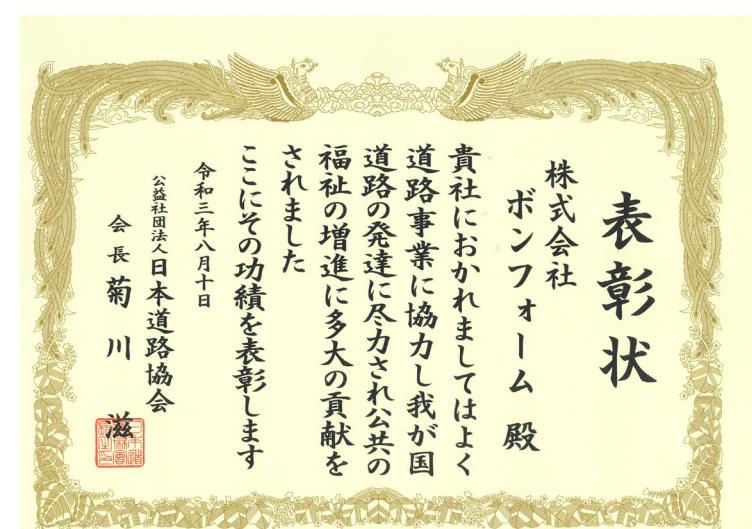 表彰状
株式会社
ボンフォーム 殿
貴社におかれましてはよく
道路事業に協力し我が国
道路の発達に尽力され公共の
福祉の増進に多大の貢献を
されました
ここにその功績を表彰します
令和三年八月十日
公益社団法人日本道路協会
会長 菊川 滋